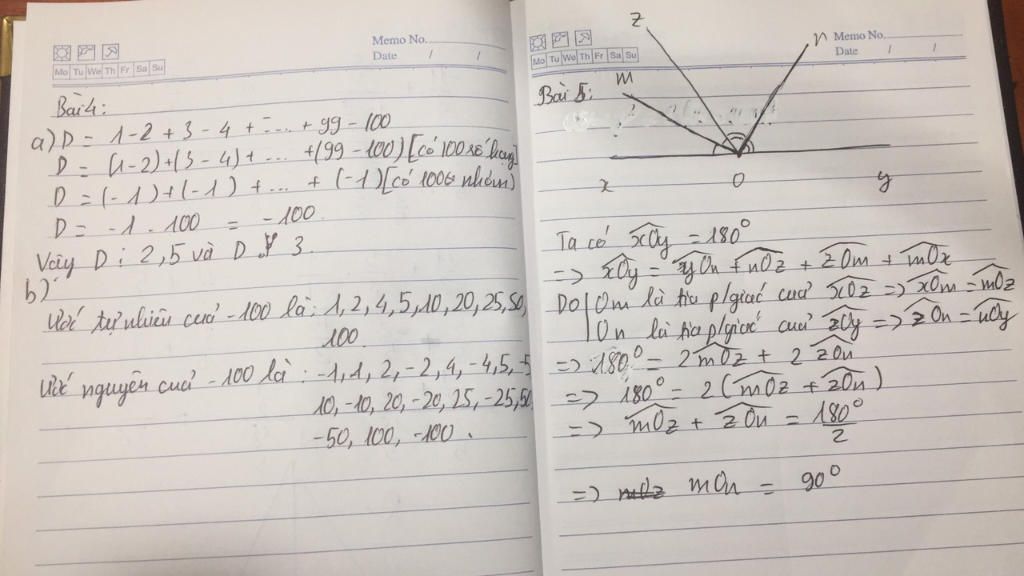 Memo No.
Date / /
Mo Tu We Th Fr Sa Su
Bài 4:
a) D = 1 - 2 + 3 - 4 + .... + 99 - 100
D = (1-2)+(3-4)+ ... +(99-100) [có 100 số hạng]
D = (-1)+(-1) + ... + (-1) [có 100 nhóm)
D = -1 . 100 = -100
Vậy D ⋮ 2,5 và D 3.
b)
Ước tự nhiên của -100 là: 1, 2, 4, 5, 10, 20, 25, 50,
100.
Ước nguyên của -100 là: -1, 1, 2, -2, 4, -4, 5, -5
10, -10, 20, -20, 25, -25, 50
-50, 100, -100.
Memo No.
Date / /
Mo Tu We Th Fr Sa Su
Bài 5:
z
n
m
x
O
y
Ta có xOy = 180°
=> xOy = yOn + nOz + zOm + mOx
Do Om là tia p/giác của xOz => xOm = mOz
On là tia p/giác của zOy => zOn = nOy
=> 180° = 2mOz + 2 zOn
=> 180° = 2(mOz + zOn)
=> mOz + zOn = 180°/2
=> mOn = 90°